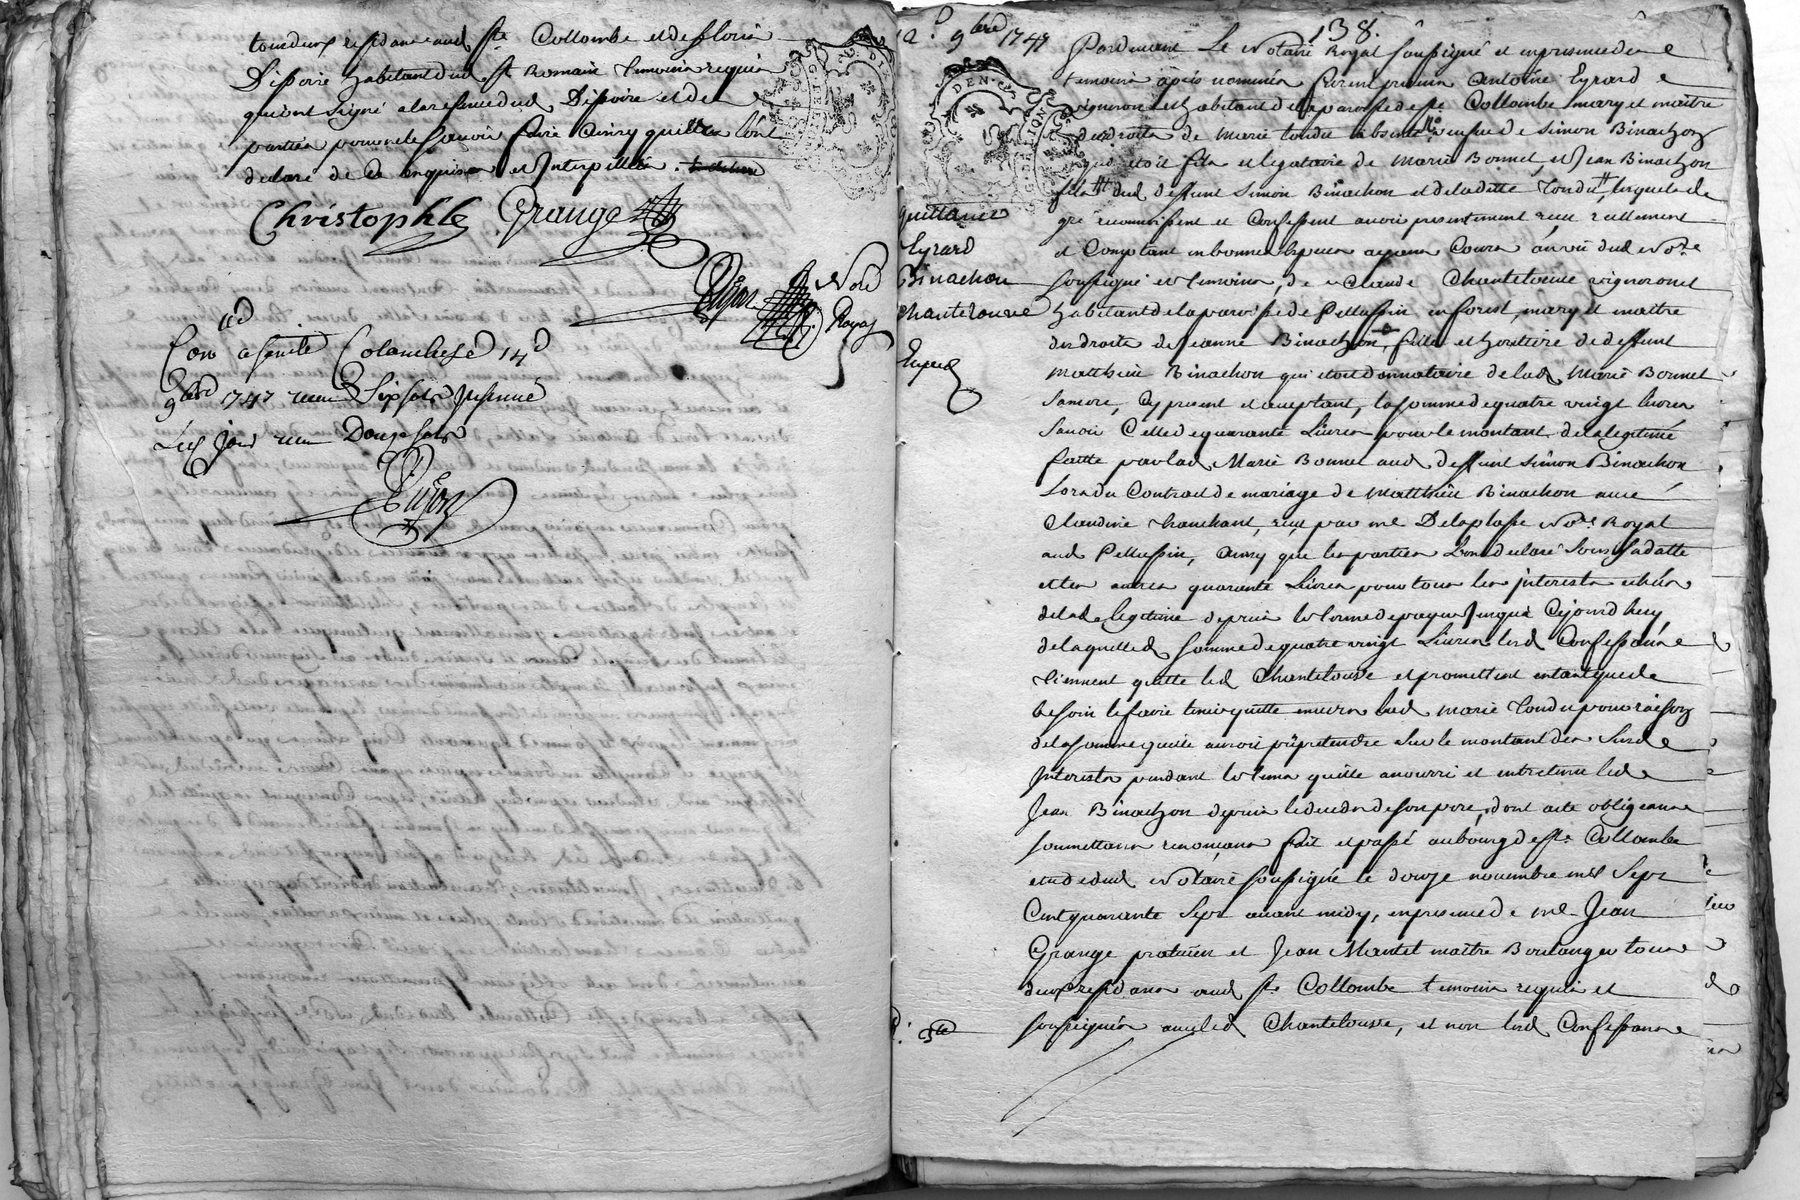 tous deux residans aud. Ste Collombe et de Floris
Dissoire habitant dud. St Romain temoins requis
qui ont signé a la reserve dud. Dissoire et des
parties pour ne le scavoir faire ainsy qu'elles l'ont
declaré de ce enquises et Interpellés.
Christophle Grange
Dujon Nore Royal
Con a Ste Colombe le 14d
9bre 1747 reçu Six sols
Led. jour reçu Douze sols
Dujon
12e 9bre 1747
138.
GNE DE LION
quittance
Eyrard
Binachon
Chantelouve
Expedé
Pardevant Le Notaire Royal soussigné et en presence des
temoins après nommés furent presens Antoine Eyrard
vigneron et habitant de la paroisse de Ste Collombe mary et maitre
des droits de Marie Tondu a absente veufve de Simon Binachon
qui étoit fils et legataire de Marie Bonnet, et Jean Binachon
fils dud. deffunt Simon Binachon et de ladatte Tondu, lesquels de
gré reconnoissent et Confessent avoir presentement reçu réellement
et Comptant en bonnes especes ayans Cours au vû dud. Nore
soussigné et temoins, de Claude Chantelouve vigneron et
habitant de la paroisse de Pellussin en forest, mary et maitre
des droits de Jeanne Binachon, fille et heritiere de deffunt
Matthieu Binachon qui etoit donnataire de lad. Marie Bonnet
sa mere, Cy present et acceptant, la somme de quatre vingt livres
savoir Celle de quarante Livres pour le montant de la legitime
faitte par lad. Marie Bonnet aud. deffunt Simon Binachon
Lors du Contract de mariage de Matthieu Binachon avec
Claudine Chanchant, reçu par me Delaplasse Nore Royal
aud. Pellussin, ainsy que les parties L'ont declaré sous sa datte
et les autres quarante Livres pour tous les interests echûs
de lad. legitime depuis le terme de payer jusqua Cejourd huy
de laquelle d. somme de quatre vingt Livres lesd. Confessans
tiennent quitte led. Chantelouve et promettent en tant que de
besoin le faire tenir quitte envers lad. Marie Tondu pour raison
de la somme qu'elle auroit pû pretendre sur le montant des susd.
Interests pendant le tems qu'elle a nourri et entretenu led.
Jean Binachon depuis le deceds de son pere, dont acte obligeans
soumettans renonçans fait et passé au bourg de Ste Collombe
etude dud. Notaire soussigné le douze novembre mil Sept
Cent quarante Sept avant midy, en presence de me Jean
Grange praticien et Jean Mantel maitre Boulanger tous
deux residans aud. Ste Collombe temoins requis et
soussignés avec led. Chantelouve, et non lesd. Confessans